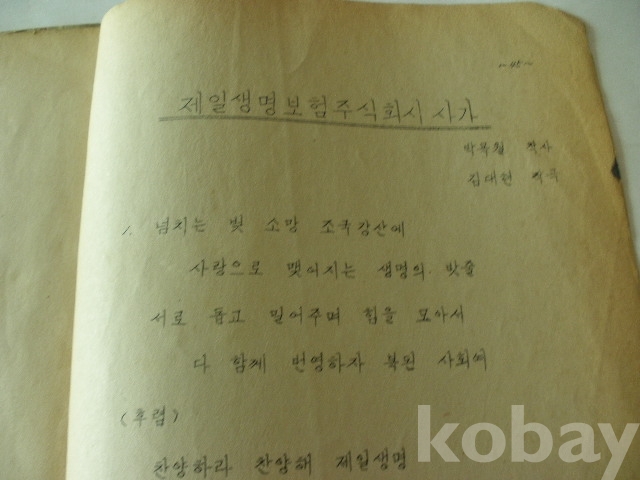 ~45~
제일생명보험주식회사 사가
박목월 작사
김대현 작곡
1. 넘치는 빛 소망 조국강산에
사랑으로 맺어지는 생명의 밧줄
서로 돕고 밀어주며 힘을 모아서
다 함께 번영하자 복된 사회에
(후렴)
찬양하라 찬양해 제일생명
kobay